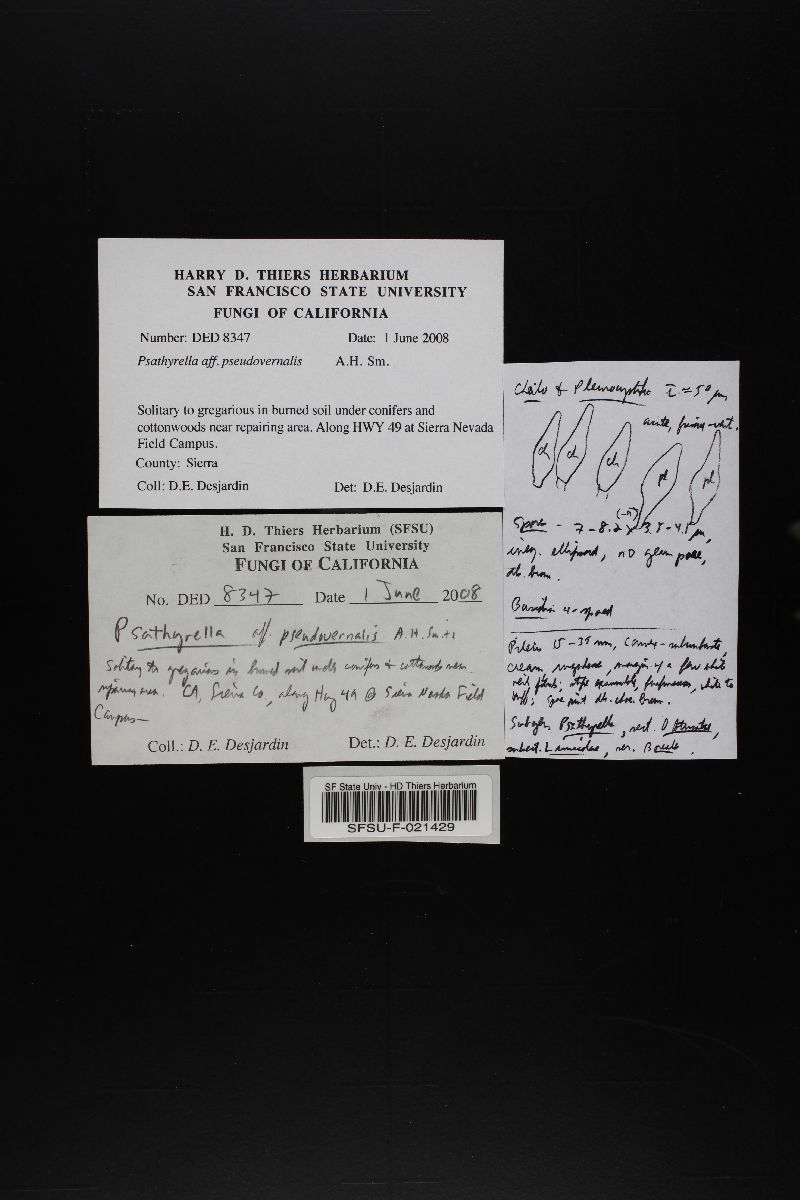 HARRY D. THIERS HERBARIUM
SAN FRANCISCO STATE UNIVERSITY
FUNGI OF CALIFORNIA
Number: DED 8347 Date: 1 June 2008
Psathyrella aff. pseudovernalis A.H. Sm.
Solitary to gregarious in burned soil under conifers and
cottonwoods near repairing area. Along HWY 49 at Sierra Nevada
Field Campus.
County: Sierra
Coll: D.E. Desjardin Det: D.E. Desjardin
H. D. Thiers Herbarium (SFSU)
San Francisco State University
FUNGI OF CALIFORNIA
No. DED 8347 Date 1 June 2008
Psathyrella aff. pseudovernalis A.H. Smith
Solitary to gregarious in burned soil under conifers & cottonwoods near
area. CA, Sierra Co, along Hwy 49 @ Sierra Nevada Field
Campus
Coll.: D. E. Desjardin Det.: D. E. Desjardin
SF State Univ - HD Thiers Herbarium
SFSU-F-021429
Cheilo & Pleurocystidia
ch ch ch pl pl
Spore - 7-8.2 (-9) x 3.5-4.5 µm,
ellipsoid, no germ pore,
dk. brown.
Basidia 4-spored
Pileus 15-35 mm, convex
cream margin w/ a few white
veil fibrils, white to
buff; spore print dk. choc. brown.
Subgen. Psathyrella, sect.